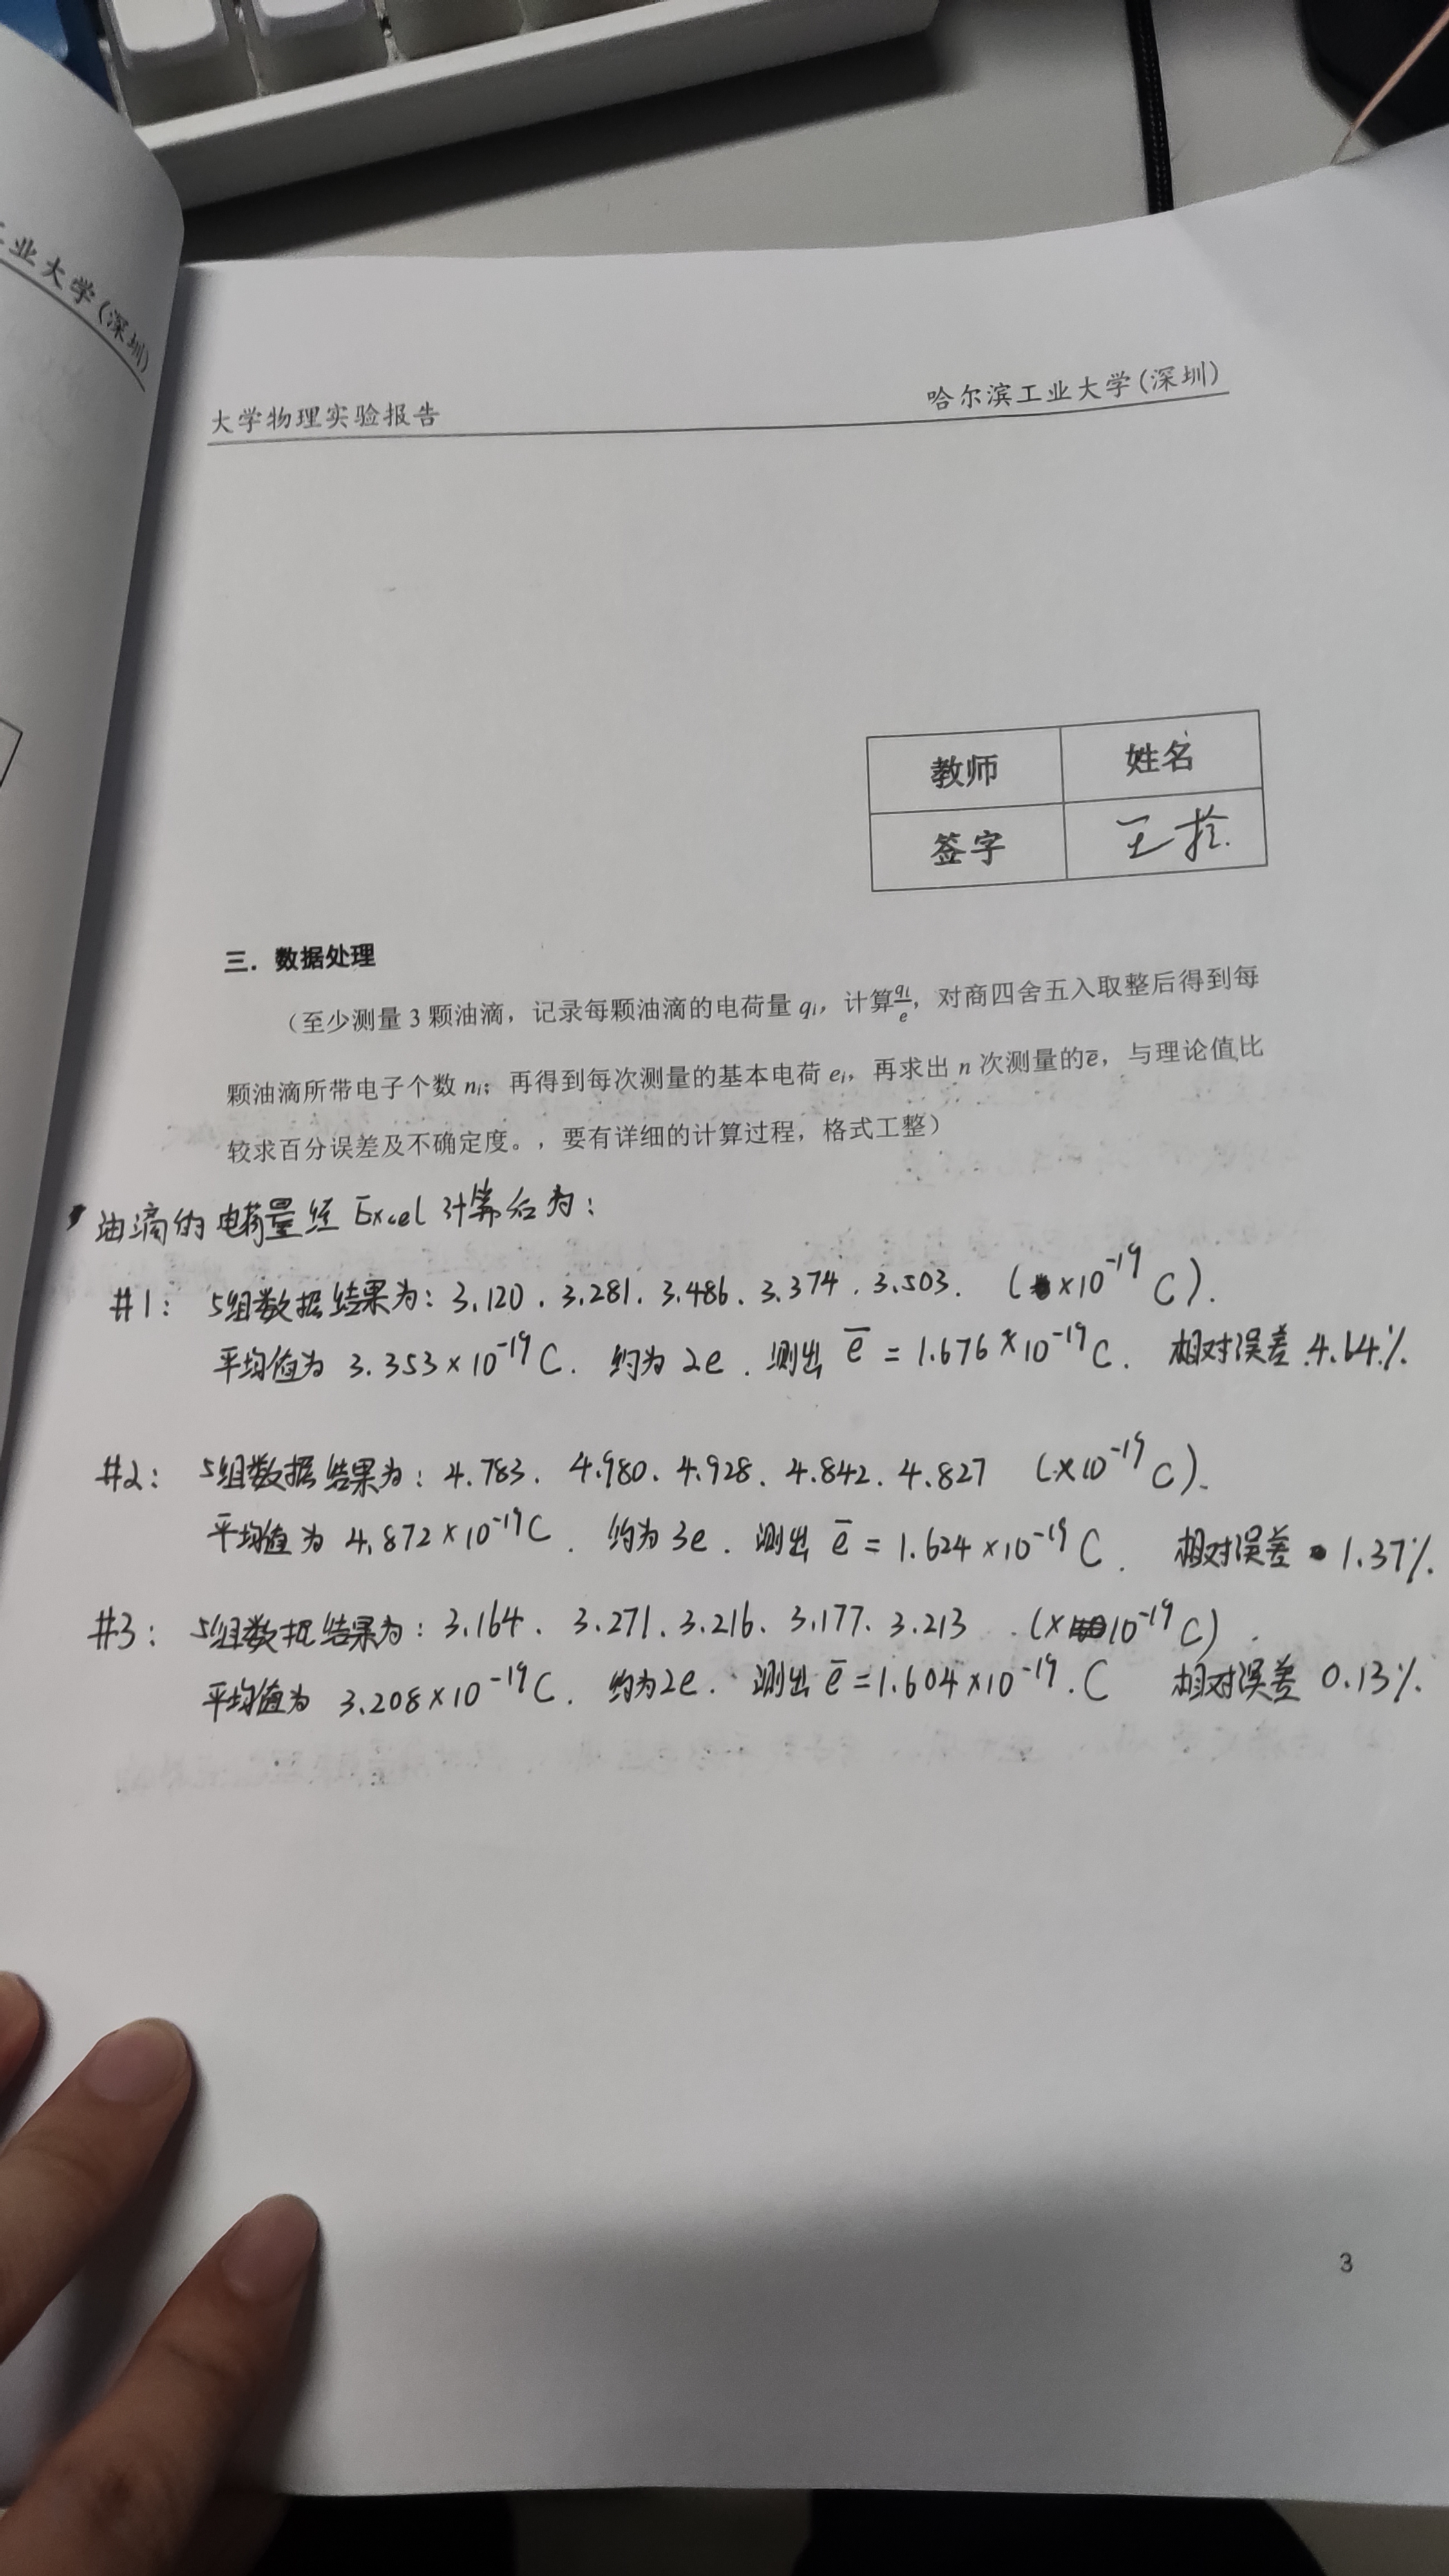 工业大学(深圳)
大学物理实验报告 哈尔滨工业大学(深圳)
教师 姓名
签字 王
三. 数据处理
（至少测量 3 颗油滴，记录每颗油滴的电荷量 qᵢ，计算qᵢ/e，对商四舍五入取整后得到每
颗油滴所带电子个数 nᵢ；再得到每次测量的基本电荷 eᵢ，再求出 n 次测量的e̅，与理论值比
较求百分误差及不确定度。，要有详细的计算过程，格式工整）
油滴的电荷量经 Excel 计算后为：
#1： 5组数据结果为：3.120、3.281、3.486、3.374、3.503. (×10⁻¹⁹ C).
平均值为 3.353×10⁻¹⁹C. 约为 2e. 测出 e̅ = 1.676×10⁻¹⁹C. 相对误差 4.64%.
#2： 5组数据结果为：4.783、4.980、4.928、4.842、4.827 (×10⁻¹⁹ C).
平均值为 4.872×10⁻¹⁹C. 约为 3e. 测出 e̅ = 1.624×10⁻¹⁹C. 相对误差 1.37%.
#3： 5组数据结果为：3.164、3.271、3.216、3.177、3.213 (×10⁻¹⁹ C).
平均值为 3.208×10⁻¹⁹C. 约为2e. 测出 e̅ = 1.604×10⁻¹⁹.C 相对误差 0.13%.
3